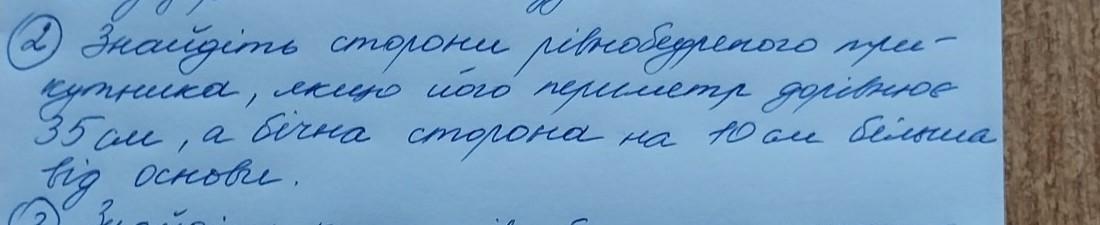 2) Знайдіть сторони рівнобедреного три-
кутника, якщо його периметр дорівнює
35 см, а бічна сторона на 10 см більша
від основи.